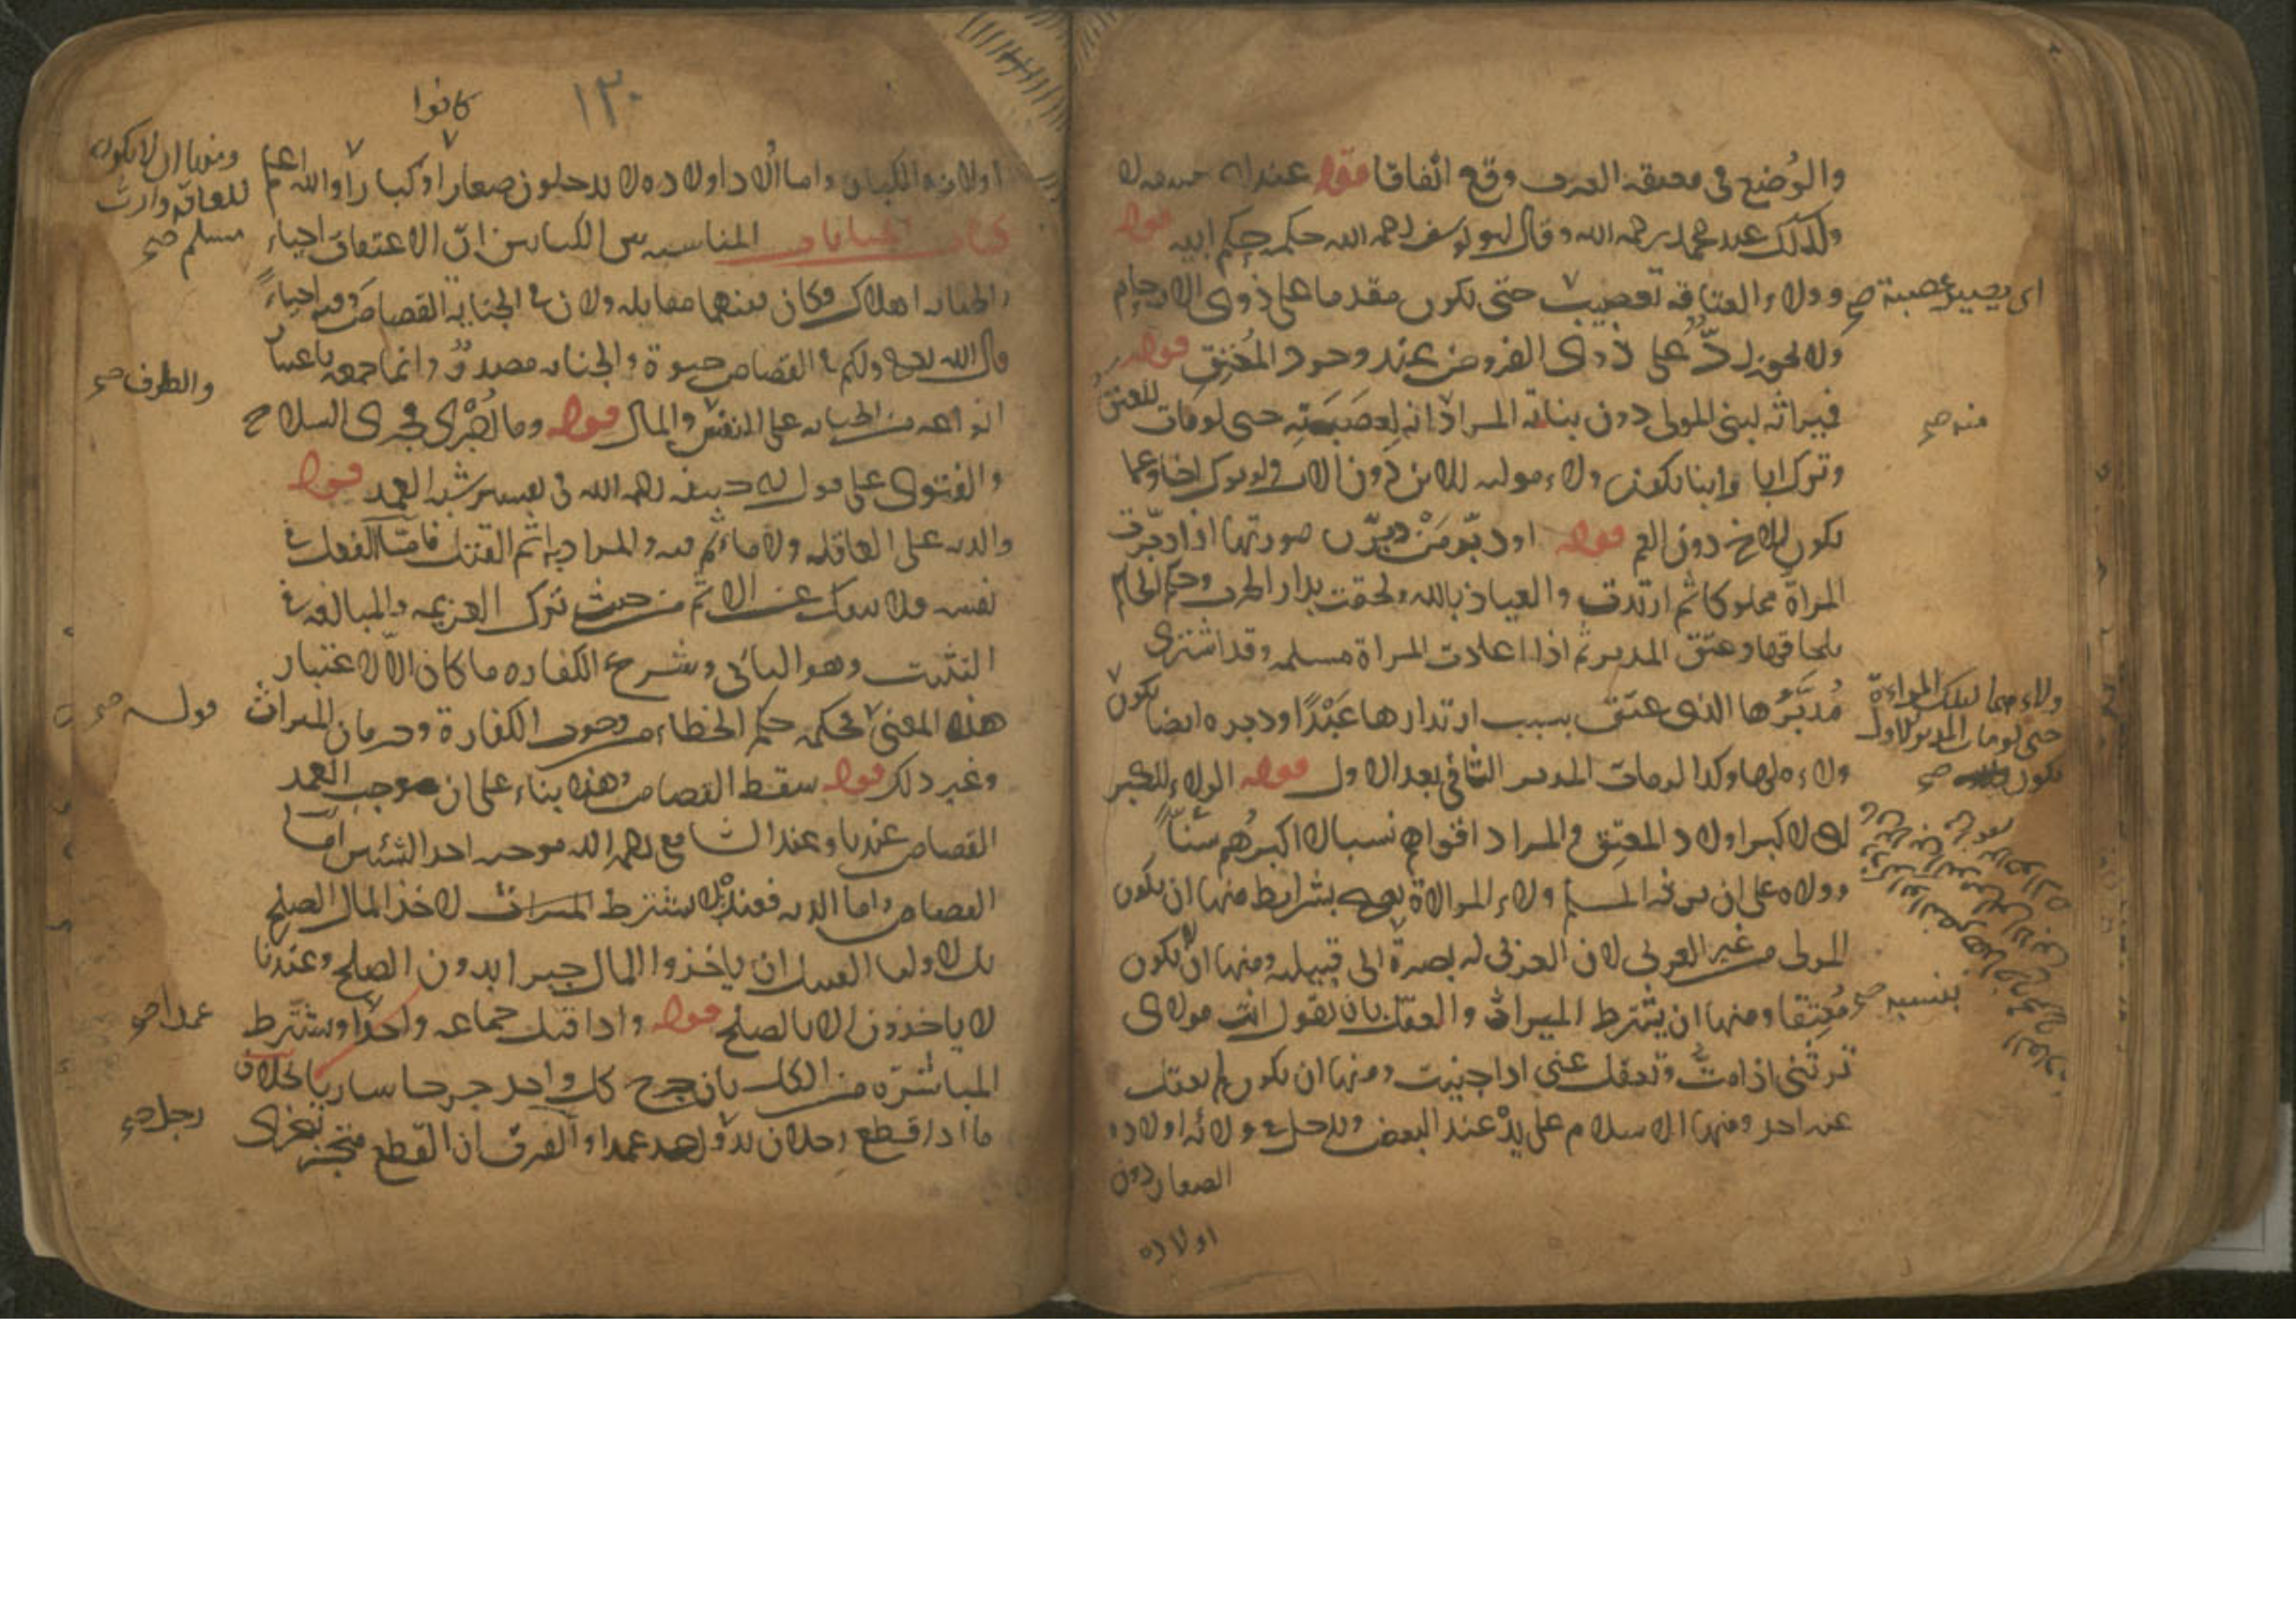 والوضع في معتقة العرب وقع اتفاقا قوله عند ابي حنيفه لا
وكذلك عند محمد رحمه الله وقال ابو يوسف رحمه الله حكمه حكم ابيه قوله
وولاء العتاقه تعصيب حتى يكون مقدما على ذوي الارحام
اى يصير عصبة صح
ولا يجوز ردّ على ذوى الفروض عند وجود المُعْتِق قوله
فميراثه لبنى المولى دون بناته المراد انه لعصبته حتى لو مات المعتق
منه صح
وترك ابا وابنا يكون ولاء مولاه للابن دون الاب ولو ترك اخا وعما
يكون للاخ دون العم قوله او دبّر مَنْ دبّرن صورتها اذا دبّرت
المراة مملوكا ثم ارتدت والعياذ بالله ولحقت بدار الحرب وحكم الحاكم
بلحاقها وعتق المدبر ثم اذا عادت المراة مسلمه وقد اشترى
مُدبَّرُها الذى عتق بسبب ارتدادها عَبْدًا ودبره ايضا يكون
ولاء
حتى لو مات المدبر الاول
يكون صح
ولاءه لها وكذا لو مات المدبر الثاني بعد الاول قوله الولاء للكبر
اى لاكبر اولاد المعتِق والمراد اقربهم نسبا لا اكبرهم سنّا
وولاه على ان يرثه المسلم ولاء الموالاة يصح بشرايط منها ان يكون
المولى من غير العربى لان العربى له نصرة الى قبيلته ومنها ان لا يكون
بنفسه صح
مُعتِقا ومنها ان يشترط الميراث والعقل بان يقول انت مولاى
ترثنى اذا مت وتعقل عنى اذا جنيت ومنها ان يكون لم يعقل
عنه احد ومنها الاسلام على يده عند البعض ويدخل في ولائه اولاده
الصغار دون
اولاده
١٣٠
كانوا
اولاده الكبار واما اولاد اولاده لا يدخلون صغارا او كبارا والله اعلم
ومنها ان لا يكون
للعاقد وارث
مسلم صح
كتاب الجنايات المناسبه بين الكتابين انّ الاعتاق احياء
والجنايه اهلاك وكان بينهما مقابله ولان في الجناية القصاص وفيه احياء
قال الله تعالى ولكم في القصاص حيوة والجنايه مصدر وانما جمعه باعتبار
والطرف صح
انواعه من الجنايه على النفس والمال قوله وما اُجْرى مجرى السلاح
والفتوى على قول ابى حنيفه رحمه الله فى تفسير شبه العمد قوله
والديه على العاقله ولا ماثم فيه والمراد به اثم القتل فامّا الفعل في
نفسه فلا ينفك عن الاثم من حيث ترك العزيمه والمبالغه في
التثبت وهو الباقى وشرع الكفاره ما كان الا لاعتبار
هذا المعنى فحكمه حكم الخطاء من وجوب الكفارة وحرمان الميراث
قوله صح
وغير ذلك قوله سقط القصاص وهذا بناء على ان موجب العمد
القصاص عندنا وعند الشافعى رحمه الله موجبه احد الشيئين اما
القصاص واما الديه فعنده لا يشترط لاخذ المال الصلح
بل لاولياء القتيل ان ياخذوا المال جبرا بدون الصلح وعندنا
لا ياخذون الا بالصلح قوله واذا قتل جماعه واحدا ويشترط
عمدا صح
المباشره من الكل بان جرح كل واحد جرحا ساريا بخلاف
ما اذا قطع رجلان يد واحد عمدا والفرق ان القطع متجزى
رجل صح